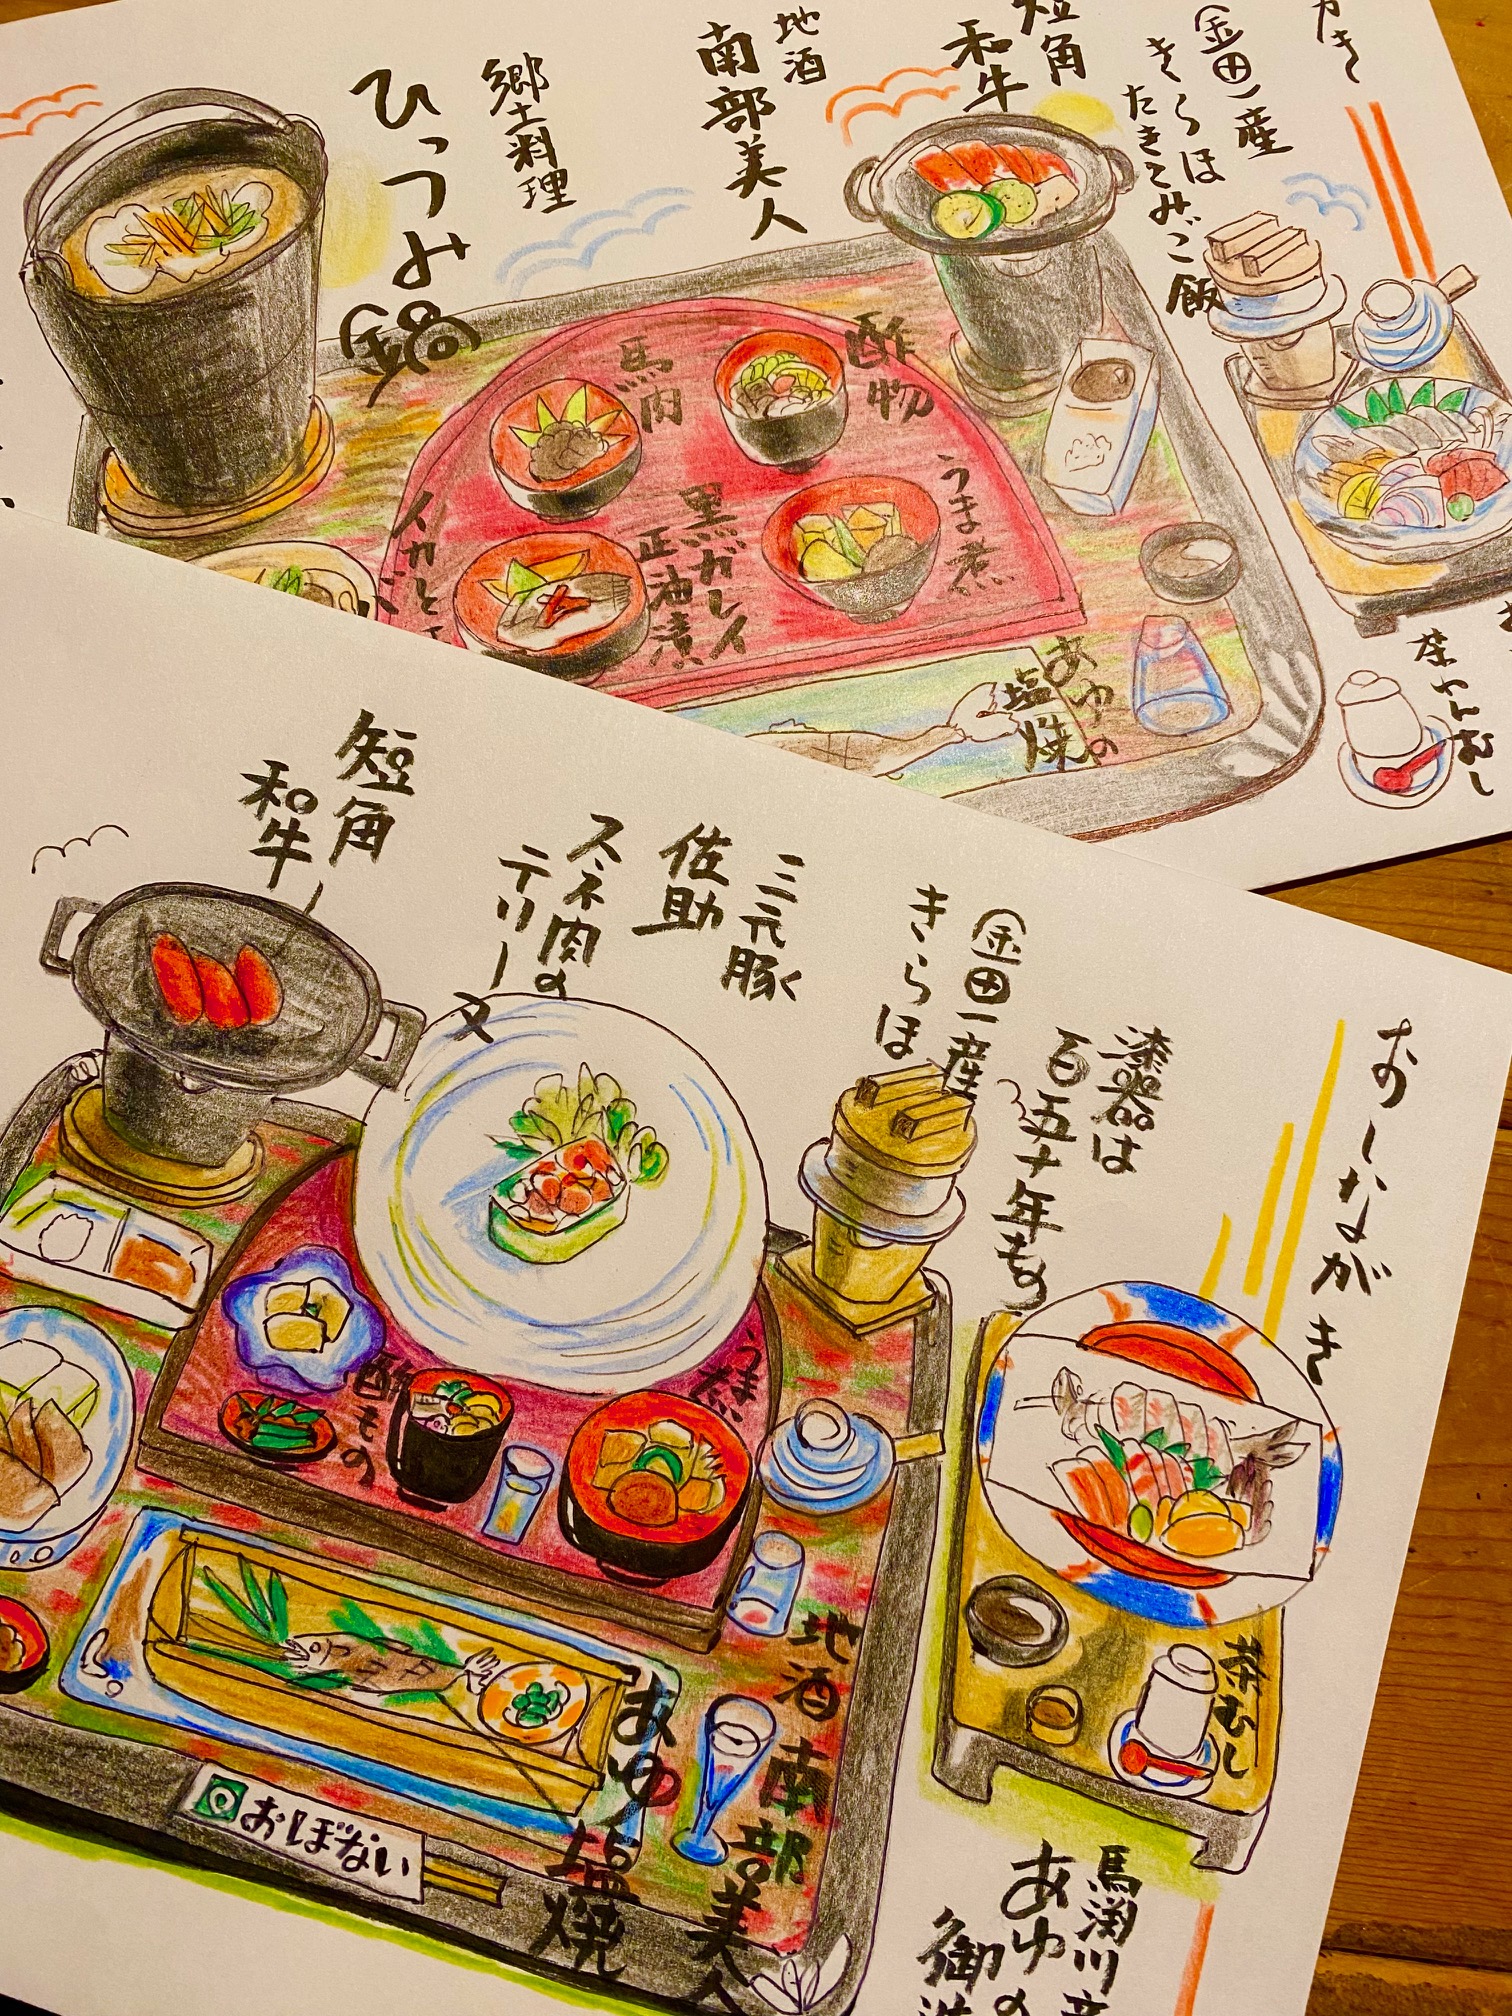 がき
金田一産
きらほ
たきこみご飯
短角
和牛
地酒
南部美人
郷土料理
ひっつみ鍋
酢物
馬肉
うま煮
黒ガレイ
正油漬
イカと
あゆの
塩焼
茶わんむし
おしながき
漆器は
百五十年もの
金田一産
きらほ
三元豚
佐助
スネ肉の
テリーヌ
短角
和牛
うま煮
酢もの
地酒
南部美人
あゆ塩焼
茶むし
おぼない
馬淵川産
あゆの